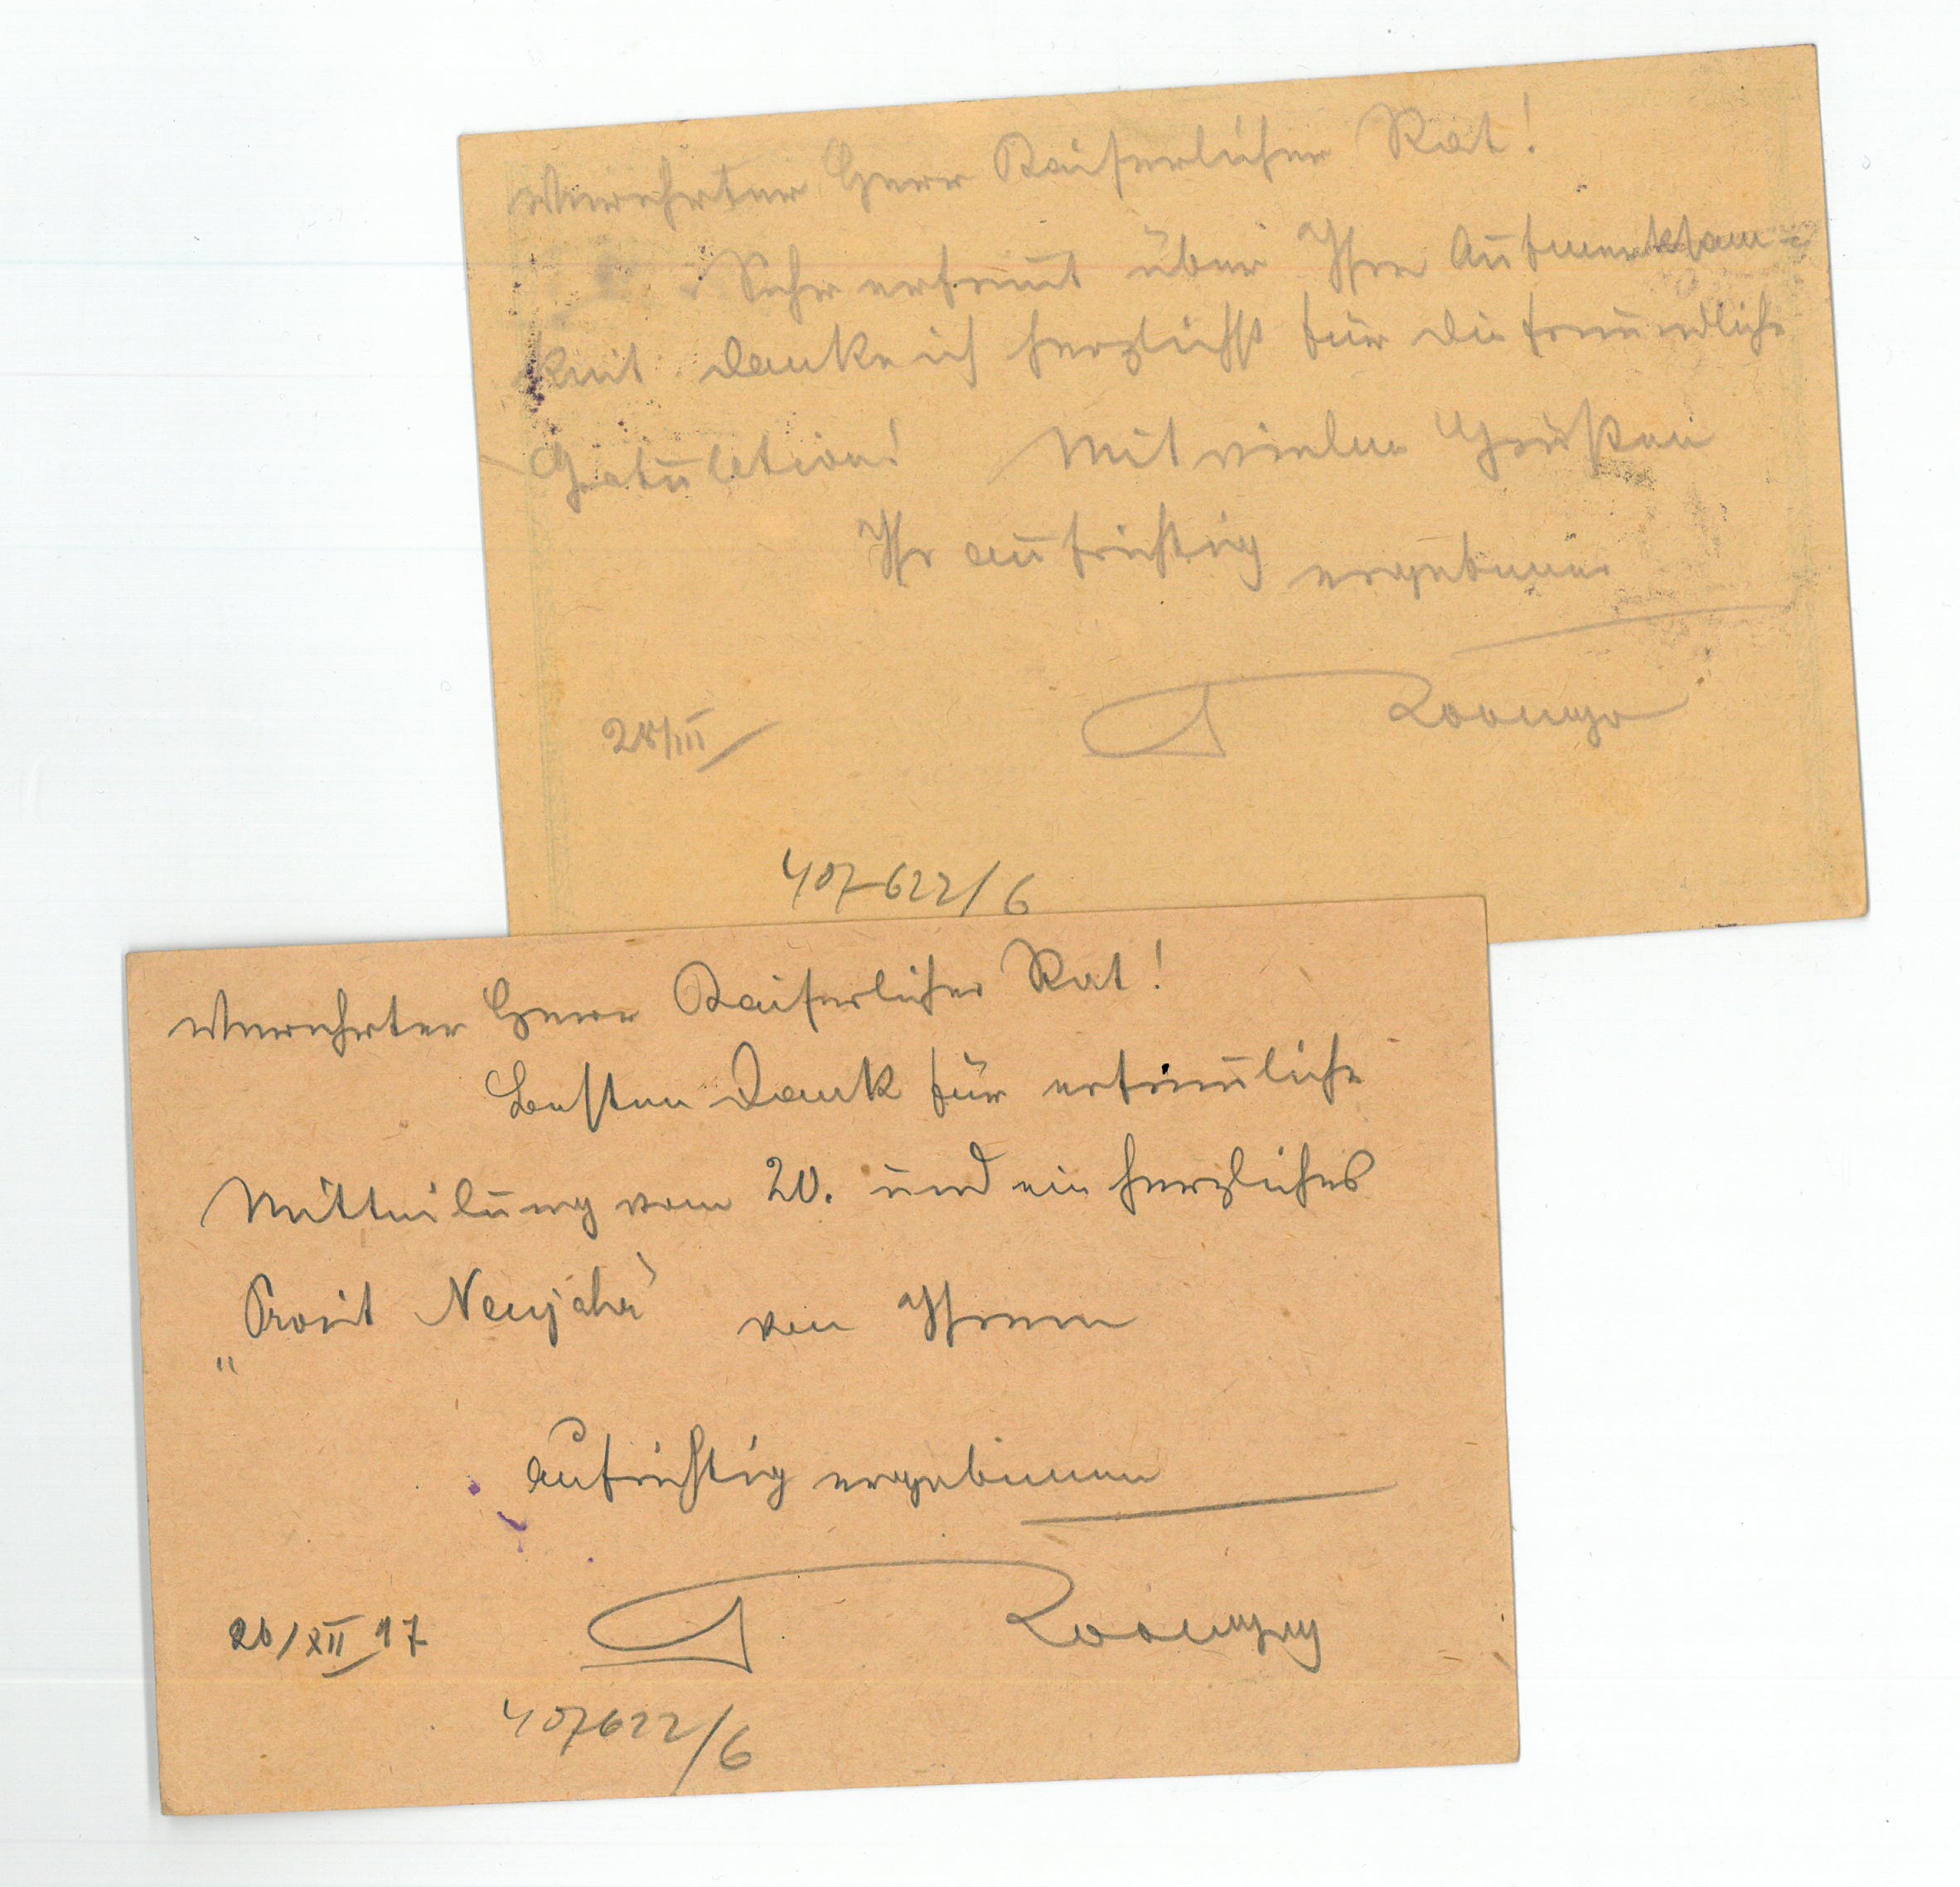 Verehrter Herr Kaiserlicher Rat!
Sehr erfreut über Ihre Aufmerksam-
keit danke ich herzlichst für die freundliche
Gratulation! Mit vielen Grüßen
Ihr aufrichtig ergebener
28/III
407622/6
Verehrter Herr Kaiserlicher Rat!
Besten Dank für erfreuliche
Mitteilung vom 20. und ein herzliches
„Prosit Neujahr" von Ihrem
aufrichtig ergebenen
26/XII 17
407622/6